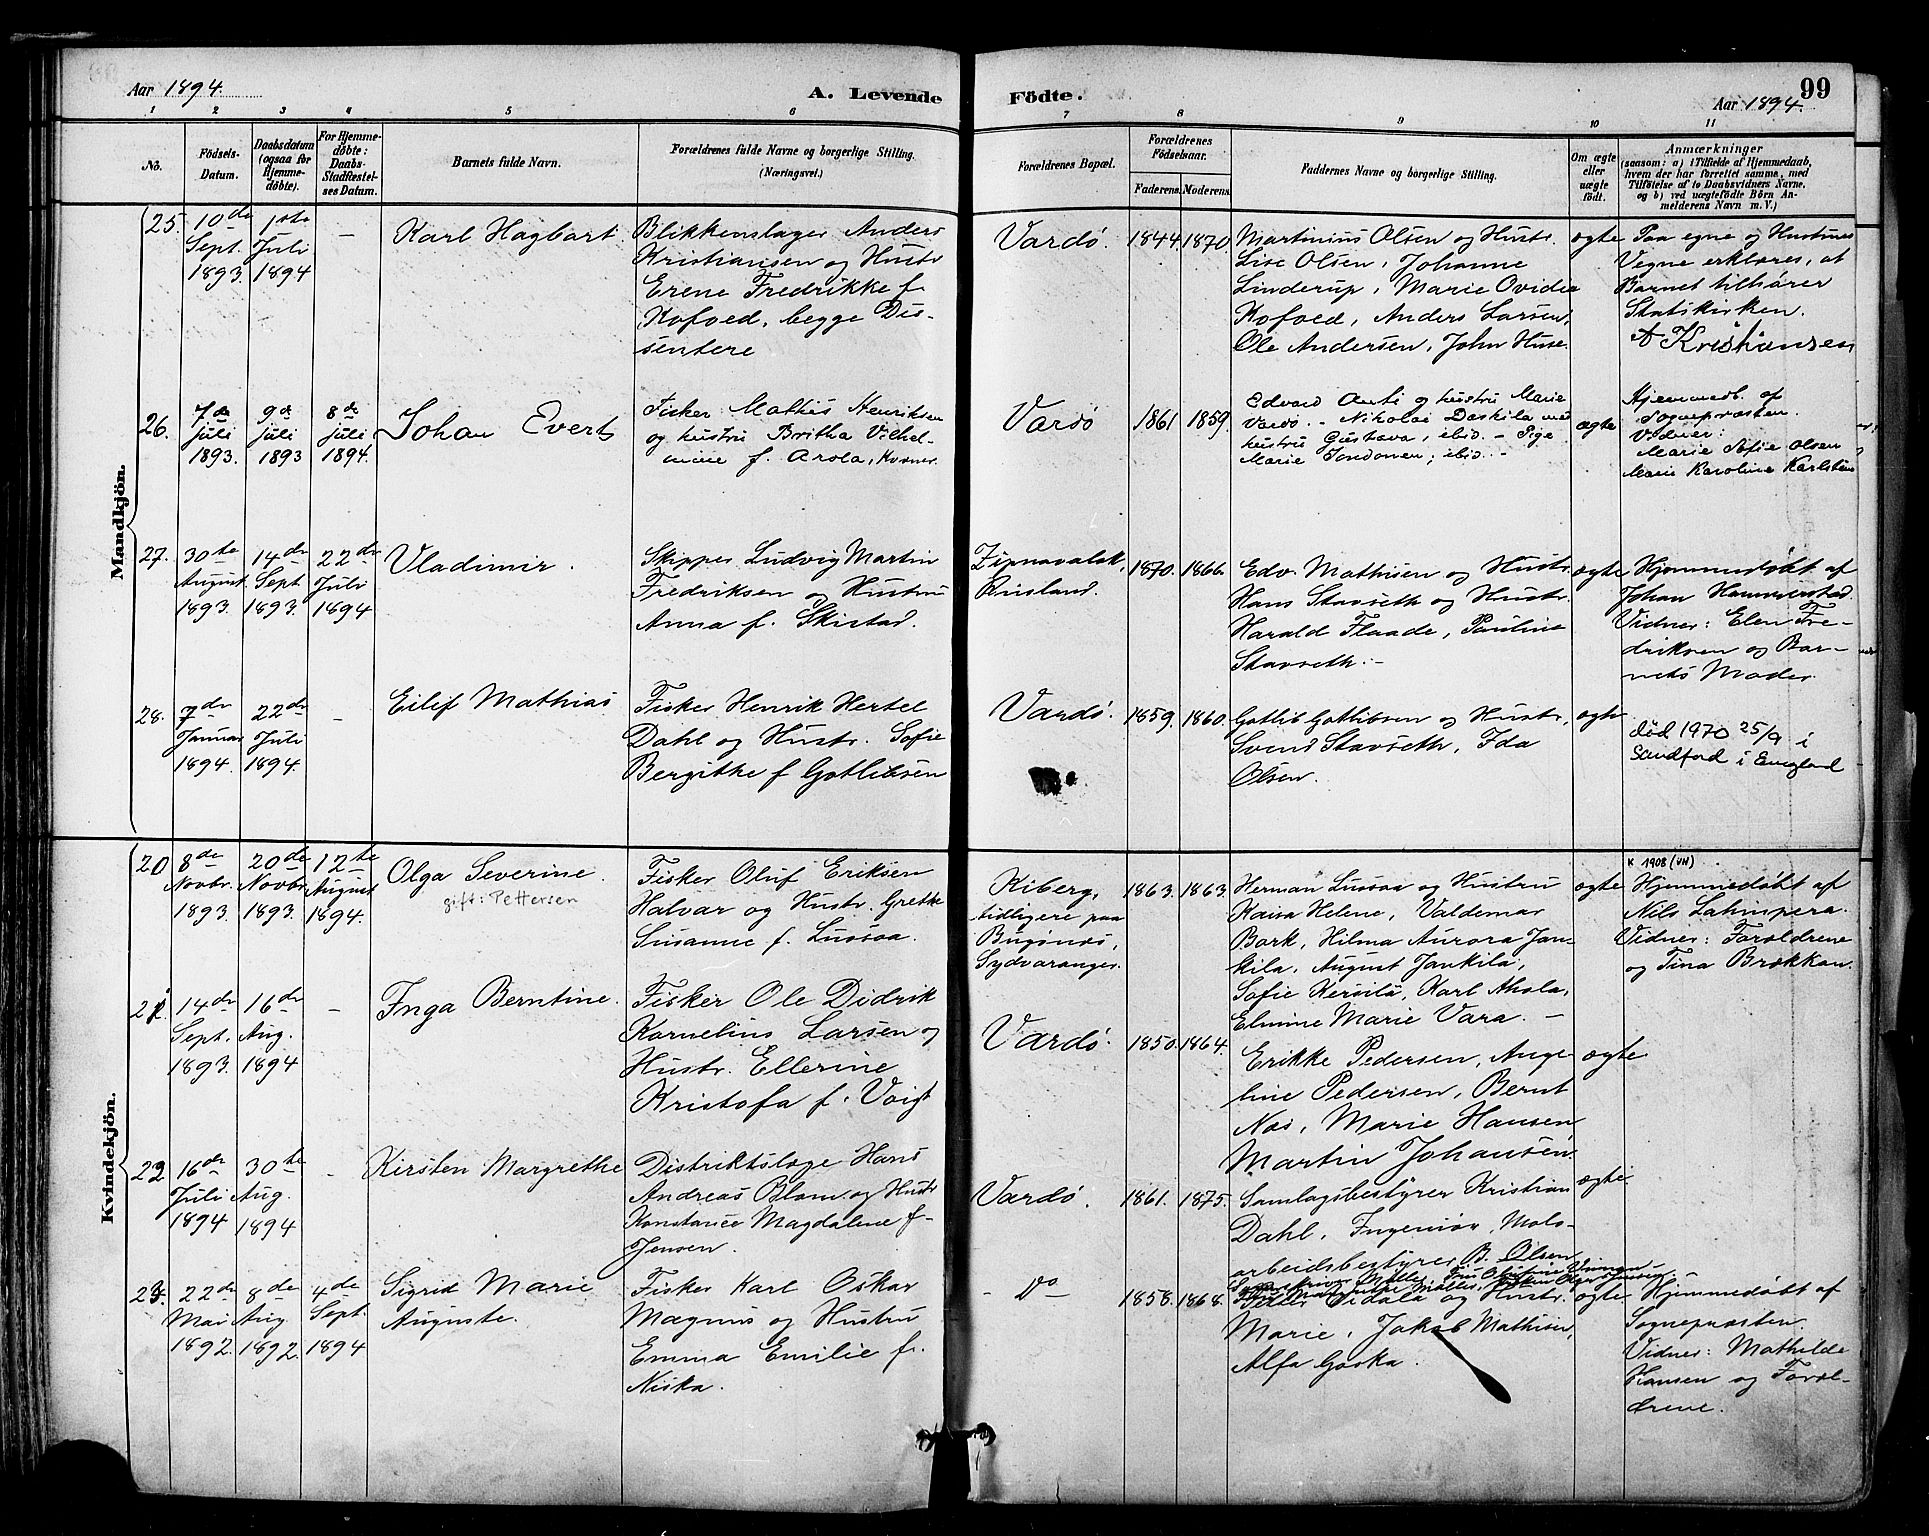 Aar 1894.
A. Levende
Födte.
99
Aar 1894.
1 2 3 4 5 6 7 8 9 10 11
No.
Födsels-
Datum.
Daabsdatum
(ogsaa for
Hjemme-
döbte).
For Hjemme-
döbte:
Daabs-
Stadfæstel-
ses Datum.
Barnets fulde Navn.
Forældrenes fulde Navne og borgerlige Stilling.
(Næringsvei.)
Forældrenes Bopæl.
Forældrenes
Födselsaar.
Faderens.
Moderens.
Faddernes Navne og borgerlige Stilling.
Om ægte
eller
uægte
födt.
Anmærkninger
(saasom: a) i Tilfælde af Hjemmedaab,
hvem der har forrettet samme, med
Tilföielse af to Daabsvidners Navne,
og b) ved uægtefödte Börn An-
melderens Navn m. V.)
Mandkjön.
25.
10de
Sept.
1893.
1ste
Juli
1894
-
Karl Hagbart.
Blikkenslager Anders
Kristiansen og Hustr
Erene Fredrikke f.
Kofoed, begge Dis-
sentere
Vardö.
1844.
1870.
Martinius Olsen og Hustr.
Lise Olsen, Johanne
Linderup, Marie Ovidia
Kofoed, Anders Larsen,
Ole Andersen, John Huse.
ægte
Paa egne og Hustrues
Vegne erklæres, at
Barnet tilhører
Statskirken.
A Kristiansen
26.
7de
juli
1893.
9de
juli
1893
8de
juli
1894.
Johan Evert
Fisker Mathis Henriksen
og hustru Britha Vilhel-
mine f. Arola, Kvæner.
Vardö
1861
1859.
Edvard Anti og hustru Marie
Vardö. - Nikolai Daskila med
hustru Gustava, ibid. - Pige
Marie ibid. -
ægte
Hjemmedb. af
Sognepræsten.
Vidner:
Marie Sofie Olsen
Marie Karoline Karlsen
27.
30te
August
1893.
14de
Sept
1893.
22de
Juli
1894
Vladimir.
Skipper Ludvig Martin
Fredriksen og Hustru
Anna f. Skistad.
Zipnavalok,
Rusland.
1870.
1866.
Edv. Mathisen og Hustr.
Hans Stavseth og Hustr.
Harald Flaade, Pauline
Stavseth. -
ægte
Hjemmedøbt af
Johan Hammerstad.
Vidner: Elen Fre-
driksen og Bar-
nets Moder.
28.
7de
Januar
1894.
22de
Juli
1894.
-
Eilif Mathias
Fisker Henrik Hertel
Dahl og Hustr. Sofie
Bergithe f Gotlibsen
Vardö.
1859.
1860.
Gotlib Gotlibsen og Hustr.,
Svend Stavseth, Ida
Olsen.
ægte
død 1970 25/9 i
Sandford i England
Kvindekjön.
20
8de
Novbr.
1893.
20de
Novbr.
1893.
12te
August
1894.
Olga Severine.
gift: Pettersen
Fisker Oluf Eriksen
Halvar og Hustr. Grethe
Susanne f. Lussoa.
Kiberg,
tidligere paa
Bugönæs,
Sydvaranger.
1863.
1863.
Herman Lussoa og Hustru
Kaisa Helene, Valdemar
Bark, Hilma Aurora Jan-
kila, August Jankila,
Sofie Kersilä, Karl Ahola,
Elmine Marie Vara. -
ægte
K 1908 (VH)
Hjemmedøbt af
Nils Lahinpera.
Vidner: Forældrene
og Tina Brækkan.
21.
14de
Sept.
1893.
16de
Aug.
1894
-
Inga Berntine.
Fisker Ole Didrik
Kornelius Larsen og
Hustr. Ellerine
Kristofa f. Voigt
Vardö.
1850.
1864.
Erikke Pedersen, Ange-
line Pedersen, Bernt
Næs, Marie Hansen
Martin Johansen.
ægte
22
16de
Juli
1894
30te
Aug.
1894
-
Kirsten Margrethe
Distriktslæge Hans
Andreas Blom og Hustr
Konstance Magdalene f.
Jensen.
Vardö.
1861.
1875.
Samlagsbestyrer Kristian
Dahl, Ingeniør, Molo-
arbeidsbestyrer B. Olsen
ægte
23.
22de
Mai
1892.
8de
Aug.
1892.
4de
Sept.
1894
Sigrid Marie
Auguste.
Fisker Karl Oskar
Magnus og Hustru
Emma Emilie f.
Niska.
- Do -
1858.
1868.
Peder Oidala og Hustr.
Marie, Jakob Mathisen,
Alfa Goska.
ægte
Hjemmedøbt af
Sognepræsten.
Vidner: Mathilde
Hansen og Foræl-
drene.